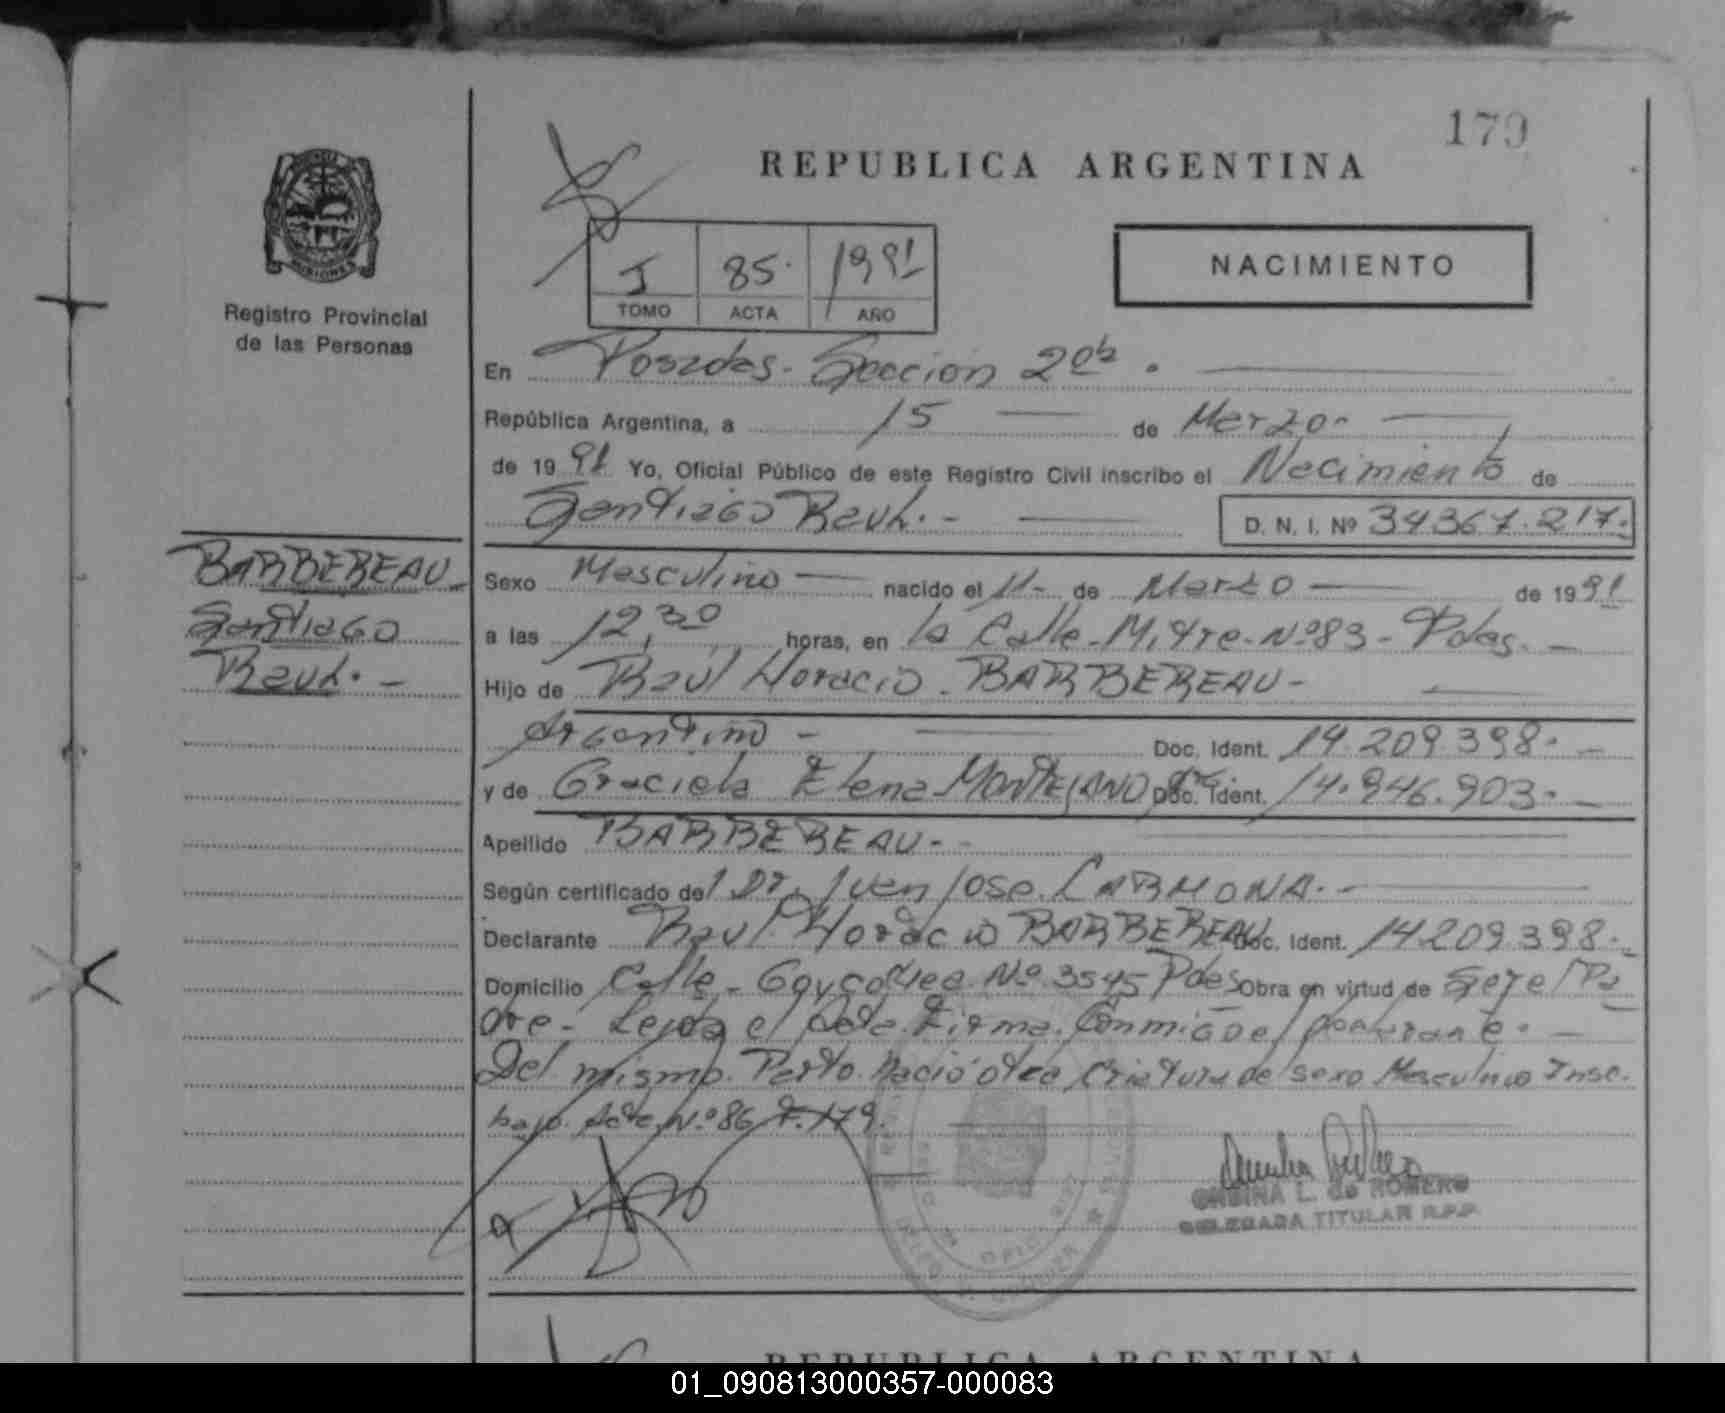 179
REPUBLICA ARGENTINA
MISIONES
Registro Provincial
de las Personas
I 85. 1991
TOMO ACTA AÑO
NACIMIENTO
En Posadas. Sección 2da.
República Argentina, a 15 de Marzo.
de 1991 Yo, Oficial Público de este Registro Civil inscribo el Nacimiento de
Santiago Raul. D. N. I. Nº 34367.217.
BARBEREAU
Santiago
Raul.
Sexo Masculino nacido el 11 de Marzo de 1991
a las 12,30 horas, en la Calle Mitre Nº 83 - Pdas.
Hijo de Raul Horacio BARBEREAU
Argentino Doc. Ident. 14.209.398.
y de Graciela Elena MONTEJANO Doc. Ident. 14.946.903.
Apellido BARBEREAU
Según certificado del Dr. Juan Jose CARMONA.
Declarante Raul Horacio BARBEREAU Doc. Ident. 14.209.398.
Domicilio Calle Goycochea Nº 3545 Pdas Obra en virtud de Ser el Pa
dre. Leida el Acta Firma Conmigo el
Del mismo Parto Nació otra Criatura de sexo Masculino Insc.
bajo Acta Nº 86 F. 179.
L. de ROMERO
DELEGADA TITULAR R.P.P.
REPUBLICA ARGENTINA
01_090813000357-000083